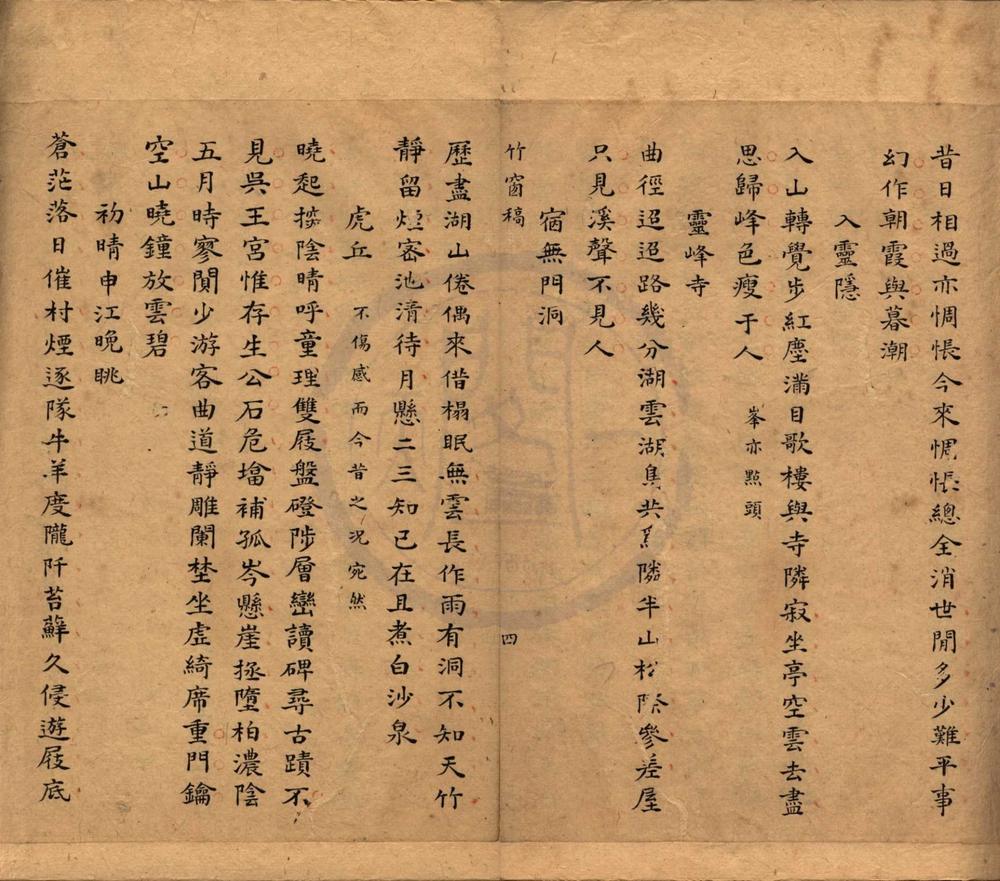 昔日相過亦惆悵今來惆悵總全消世閒多少難平事
幻作朝霞與暮潮
入靈隱
入山轉覺步紅塵滿目歌樓與寺隣寂坐亭空雲去盡
思歸峰色瘦于人 峯亦點頭
靈峰寺
曲徑迢迢路幾分湖雲湖隼共為隣半山松際參差屋
只見溪聲不見人
竹窗稿 四
宿無門洞
歷盡湖山倦偶來借榻眠無雲長作雨有洞不知天竹
靜留烟宻池清待月懸二三知已在且煮白沙泉
虎丘 不傷感而今昔之况宛然
曉起揆陰晴呼童理雙屐盤磴陟層巒讀碑尋古蹟不
見吳王宮惟存生公石危墖補孤岑懸崖拯墮柏濃陰
五月時寥閴少游客曲道靜雕闌坐虛綺席重門鑰
空山曉鐘放雲碧
初晴申江晚眺
蒼茫落日催村煙逐隊牛羊度隴阡苔蘚久侵遊屐底